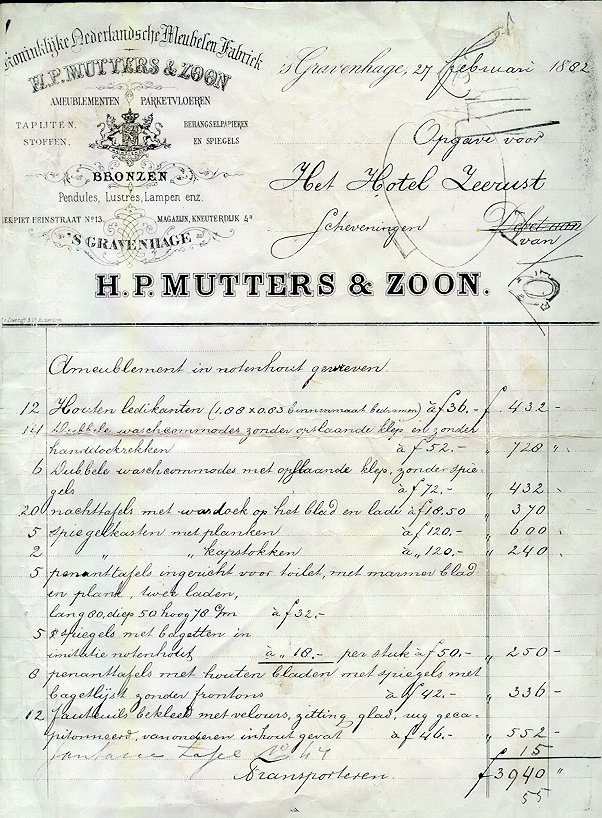 Koninklijke Nederlandsche Meubelen Fabriek
H.P. MUTTERS & ZOON
AMEUBLEMENTEN PARKETVLOEREN
TAPIJTEN, BEHANGSELPAPIEREN
STOFFEN, EN SPIEGELS
BRONZEN
Pendules, Lustres, Lampen enz.
PIET HEINSTRAAT No 13. MAGAZIJN, KNEUTERDIJK 4a
'S GRAVENHAGE
's Gravenhage, 27 Februari 1882
Opgave voor
Het Hotel Zeerust
Scheveningen
van
H.P. MUTTERS & ZOON.
Ameublement in notenhout gewreven.
12 Houten ledikanten (1.88 x 0.83 binnenmaat bedramen) à f 36.- f 432 -
14 Dubbele waschcommodes zonder opslaande klep en zonder
handdoekrekken à f 52.- " 728 "
6 Dubbele waschcommodes met opslaande klep, zonder spie-
gels à f 72.- " 432 -
20 nachttafels met wasdoek op het blad en lade à f 18.50 " 370
5 spiegelkasten met planken à f 120.- " 600
2 " " kapstokken à " 120.- " 240
5 penanttafels ingericht voor toilet, met marmer blad
en plank, twee laden,
lang 80, diep 50 hoog 78 c/m à f 32.-
5 spiegels met bagetten in
imitatie notenhout à " 18.- per stuk à f 50.- " 250 -
8 penanttafels met houten bladen met spiegels met
bagetlijst zonder frontons à f 42.- " 336 -
12 fauteuils bekleed met velours, zitting glad, rug geca-
pitonneerd, van onderen in hout gevat à f 46.- " 552 -
tafel No 47 f 15
Transporteren. f 3940 "
55